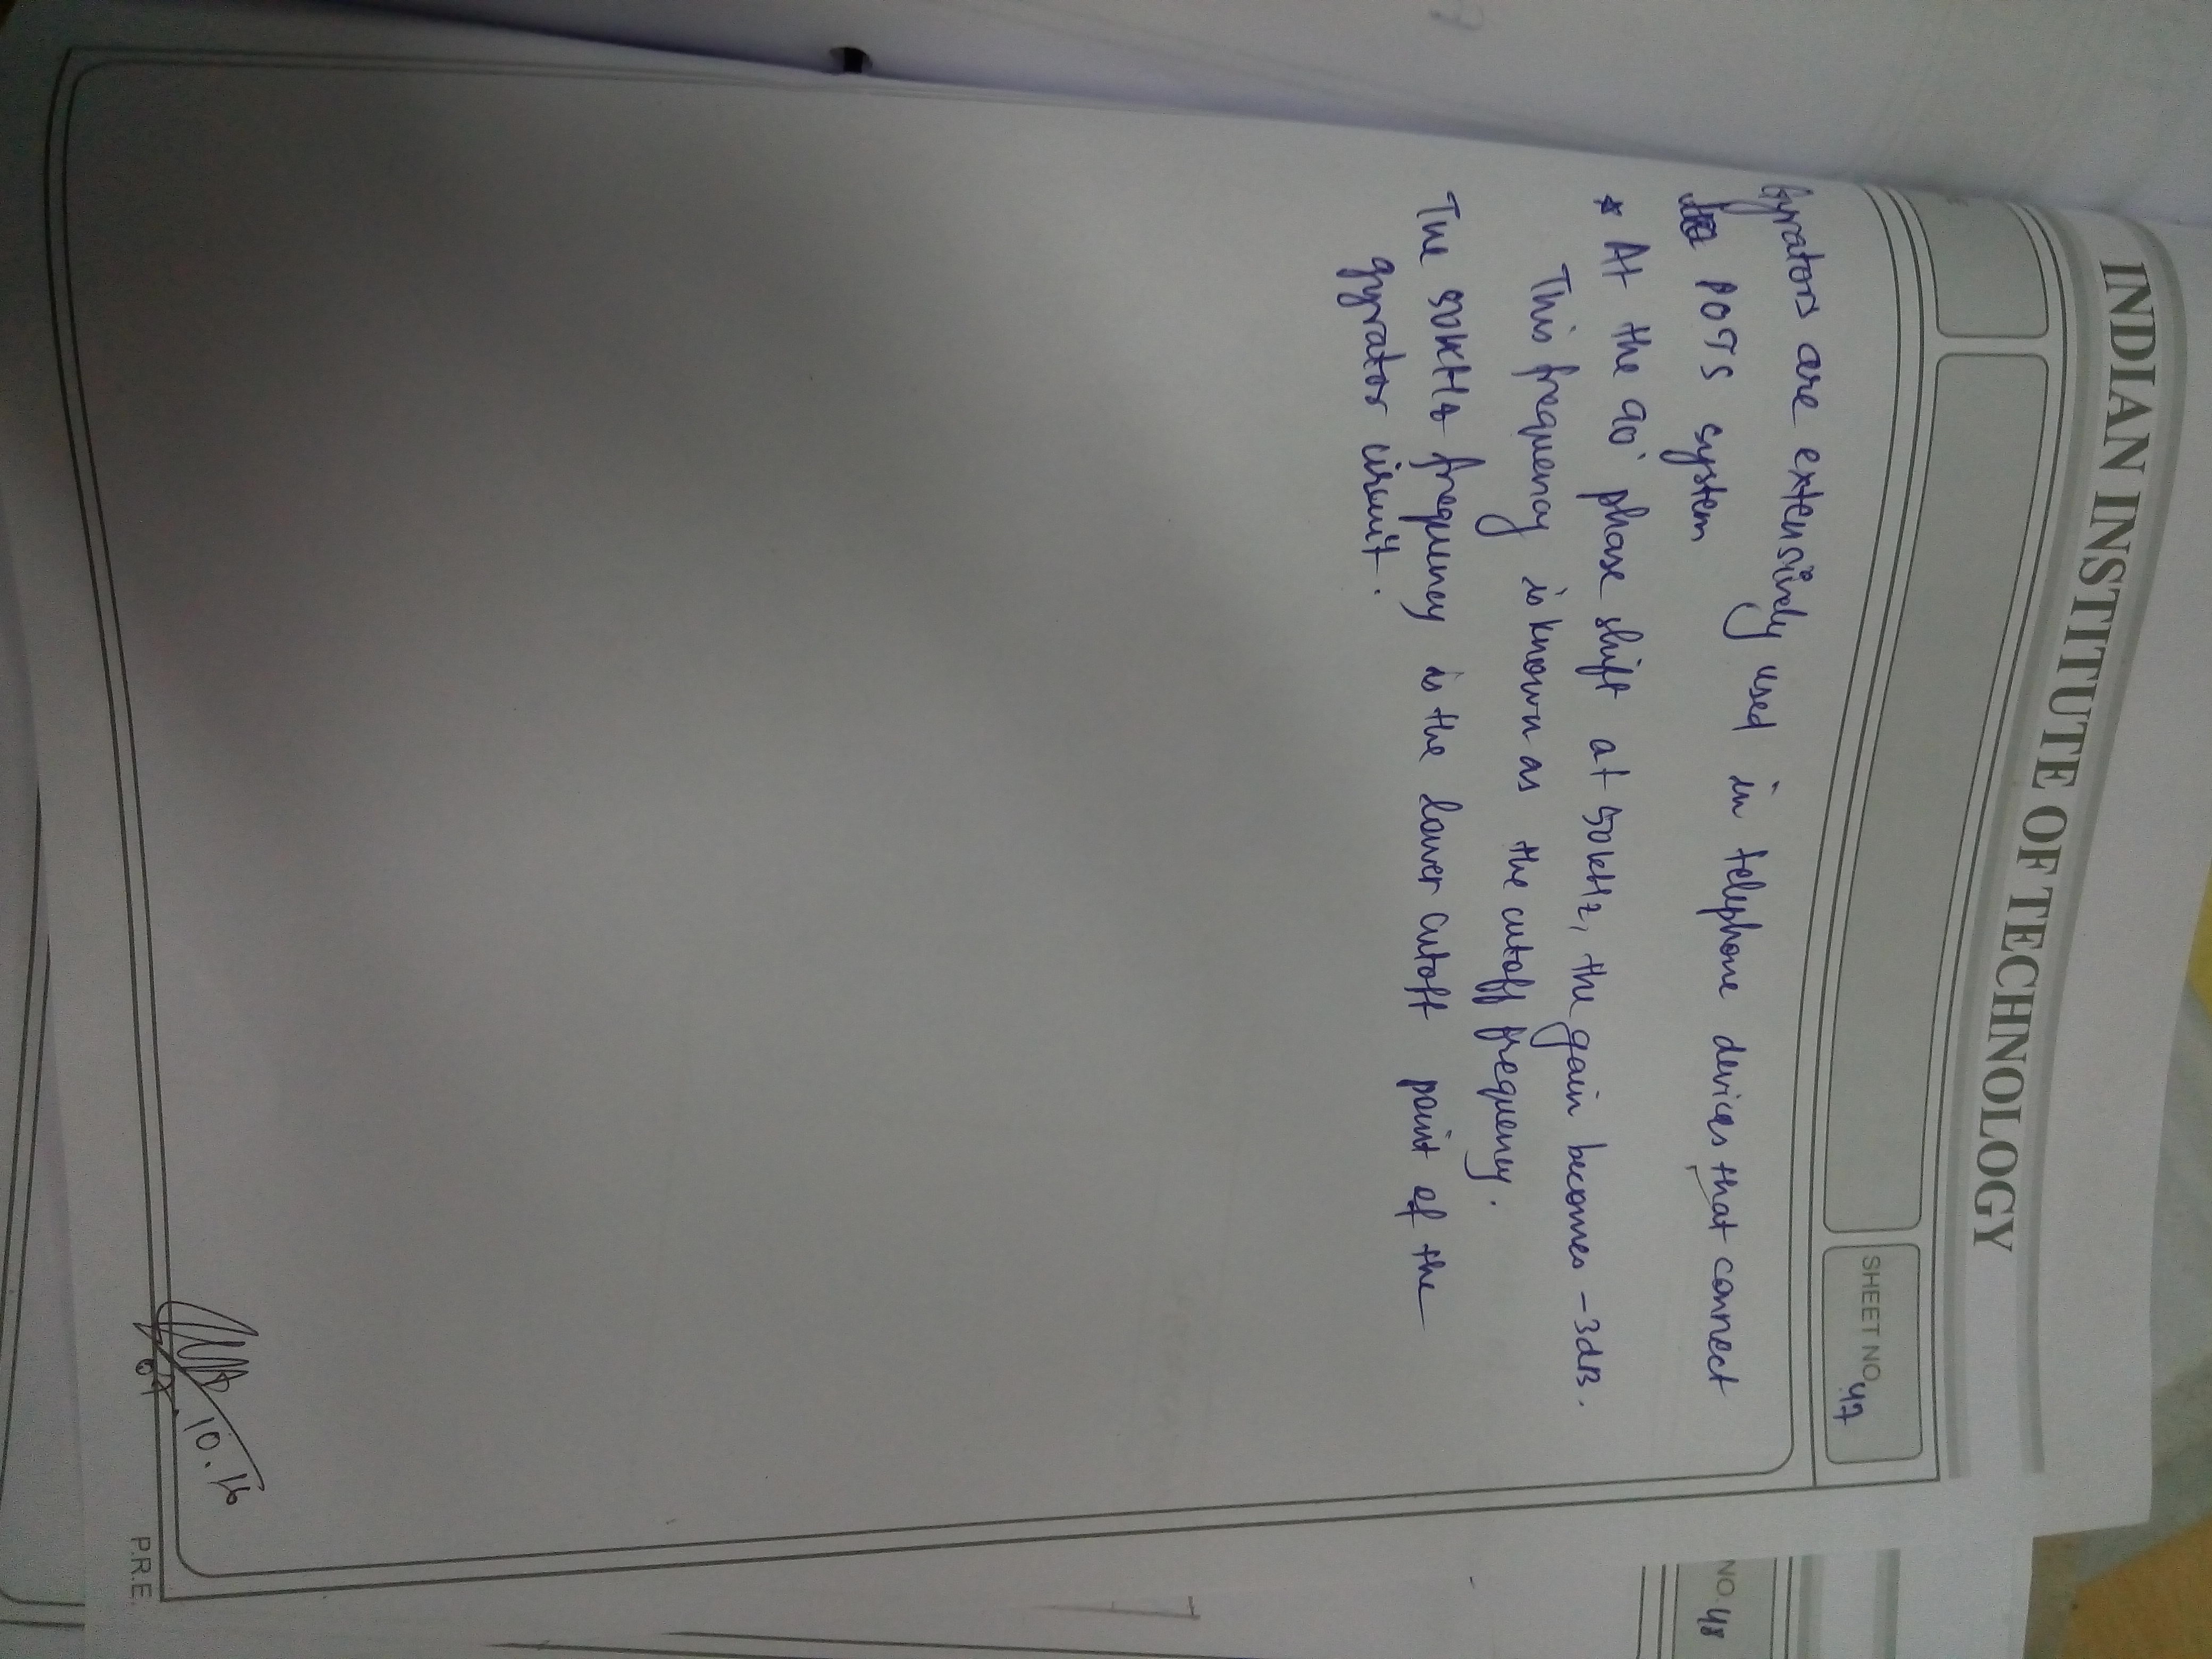 INDIAN INSTITUTE OF TECHNOLOGY
SHEET NO. 47
NO. 48
Gyrators are extensively used in telephone devices that connect
to POTS system
* At the 90° phase shift at 50kHz, the gain becomes -3dB.
This frequency is known as the cutoff frequency.
The 50kHz frequency is the lower cutoff point of the
gyrator circuit.
07.10.16
P.R.E.